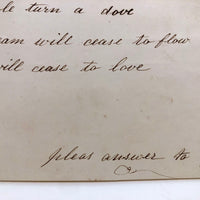 le turn a dove
eam will cease to flow
will cease to love
pleas answer to